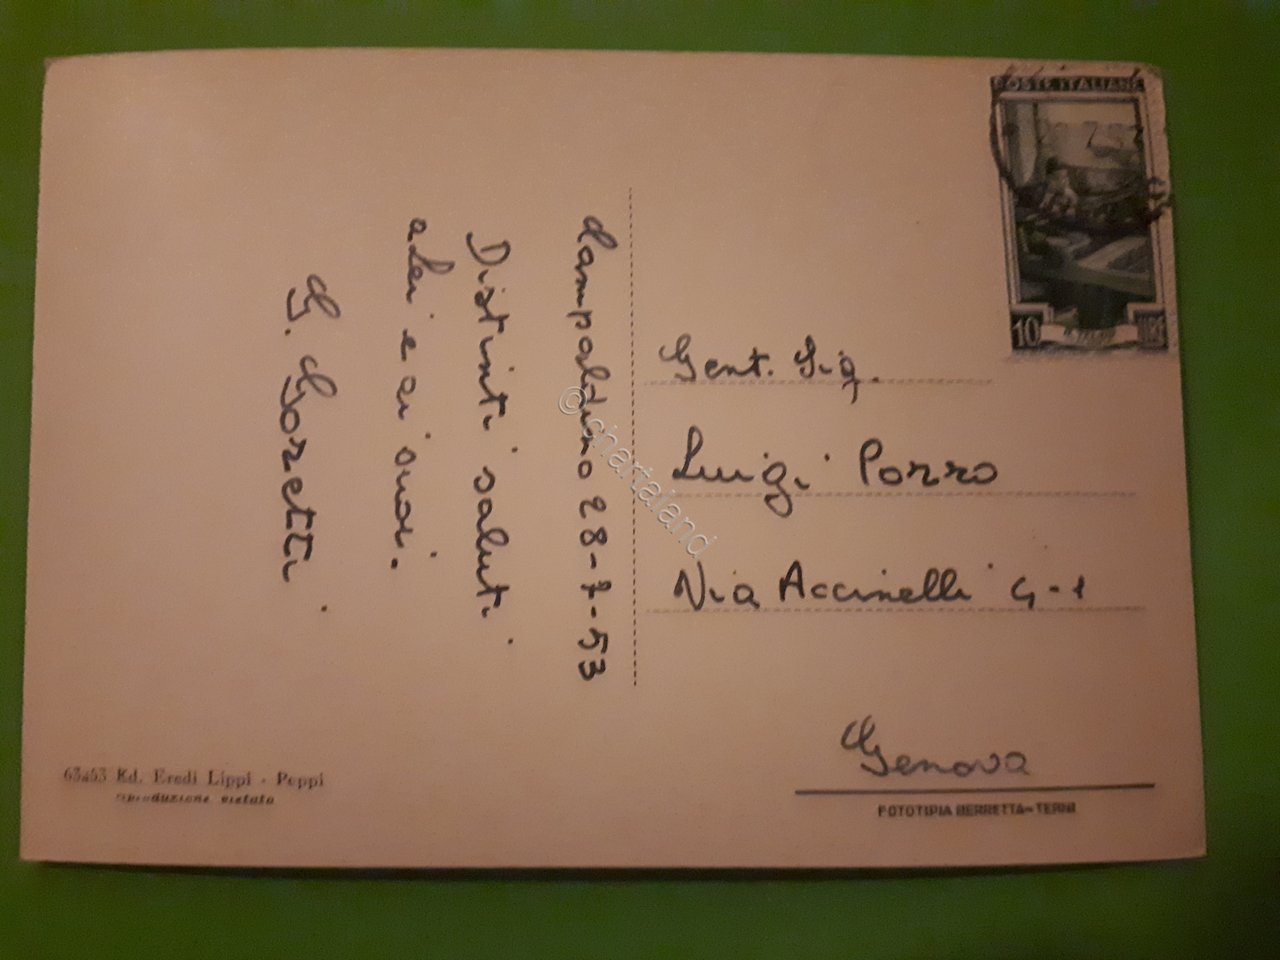 POSTE ITALIANE
10
LIRE
Campaldino 28-7-53
Distinti saluti
a Lei e ai suoi.
G. Goretti
Gent. Sig.
Luigi Porro
Via Accinelli 4-1
Genova
63453 Ed. Eredi Lippi - Poppi
riproduzione vietata
FOTOTIPIA BERRETTA - TERNI
© chartaland